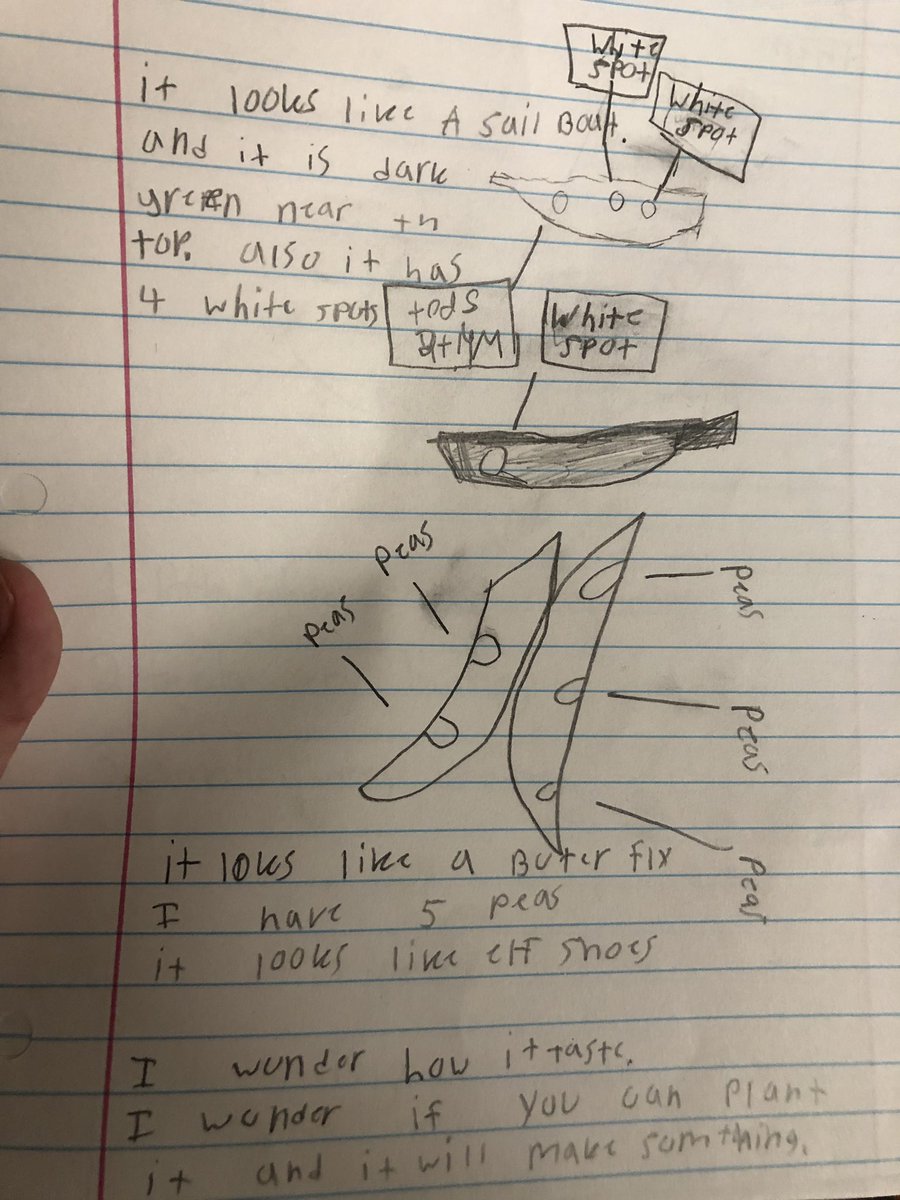 White
spot
White
spot
it looks like A sail Boat.
and it is dark
green near th
top. also it has
4 white spots
White
spot
White
spot
peas
peas
peas
peas
peas
it loks like a Buter fix
I have 5 peas
it looks like elf shoes
I wonder how it taste.
I wonder if you can plant
it and it will make somthing.